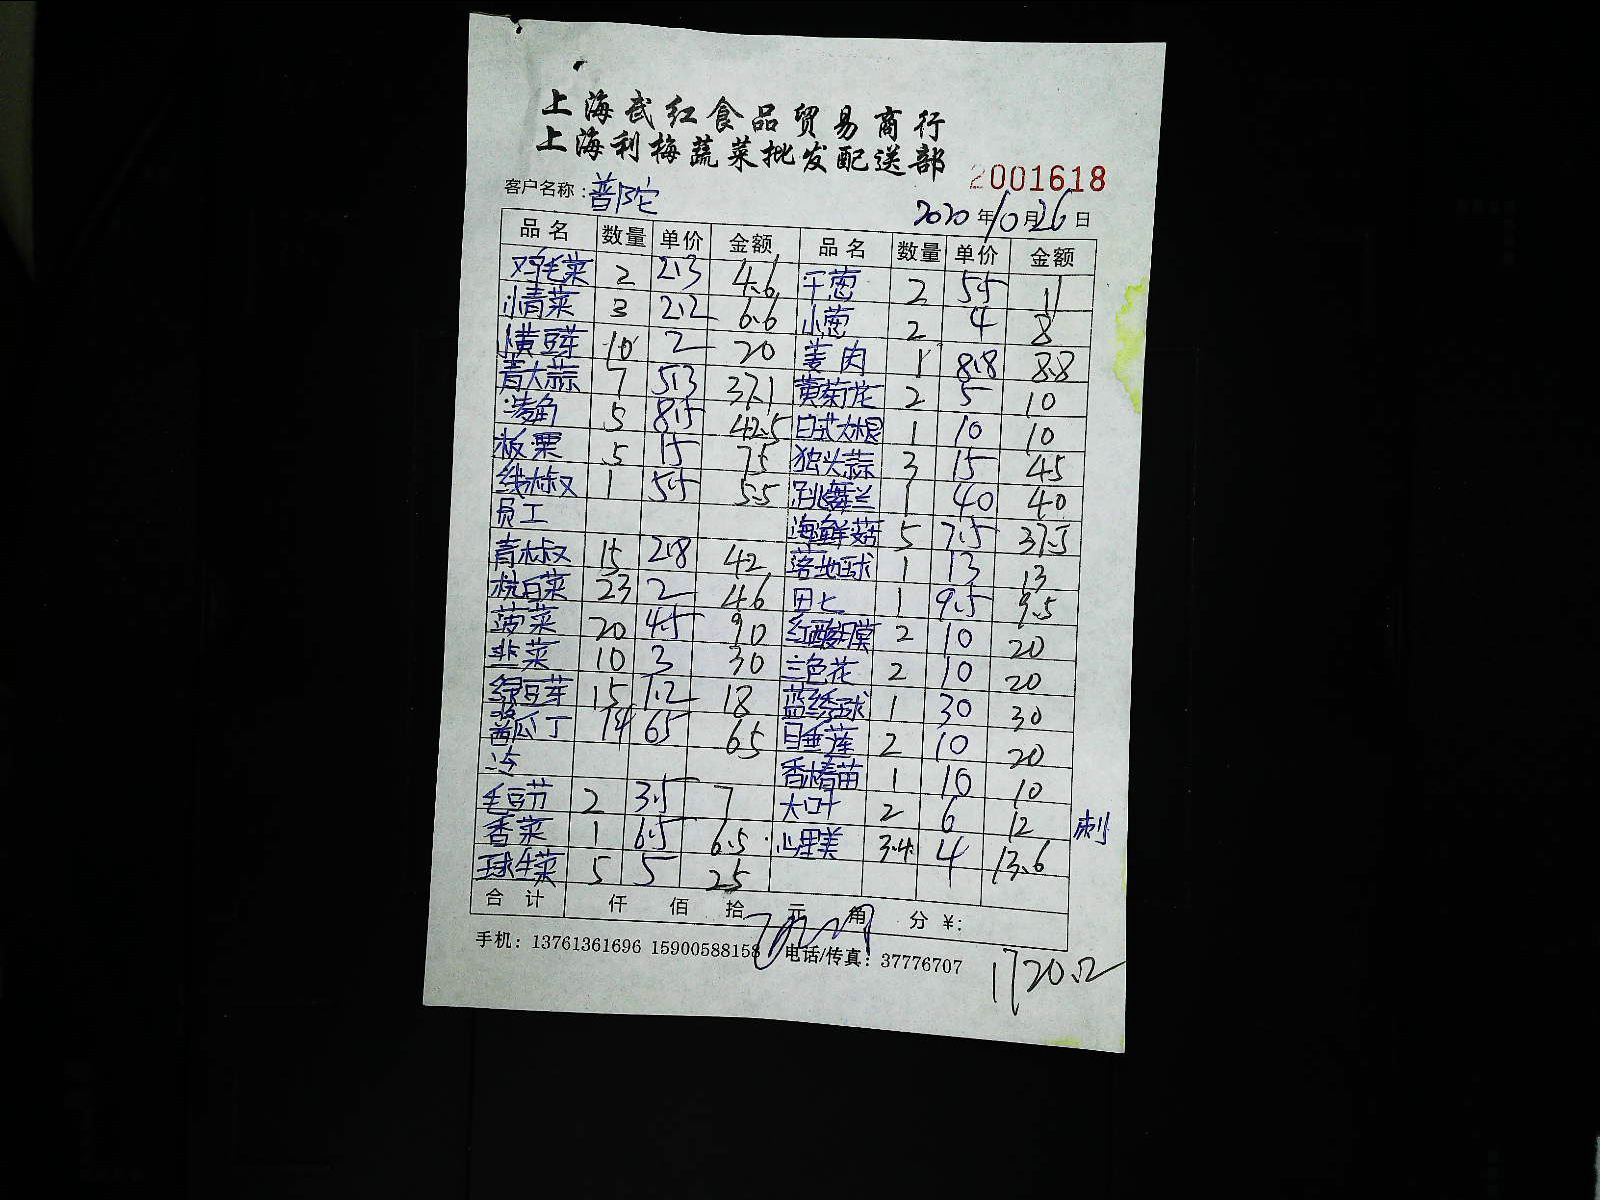 上海武红食品贸易商行
上海利梅蔬菜批发配送部
2001618
客户名称：普陀
2020年10月26日
品名 数量 单价 金额 品名 数量 单价 金额
鸡毛菜 2 2.3 4.6 干葱 2 5.5 11
小青菜 3 2.2 6.6 小葱 2 4 8
黄豆芽 10 2 20 姜肉 1 8.8 8.8
青大蒜 7 5.3 37.1 黄菊花 2 5 10
菱角 5 8.5 42.5 日式大根 1 10 10
板栗 5 15 75 独头蒜 3 15 45
线椒 1 5.5 5.5 跳舞兰 1 40 40
员工 海鲜菇 5 7.5 37.5
青椒 15 2.8 42 落地球 1 13 13
杭白菜 23 2 46 田七 1 9.5 9.5
菠菜 20 4.5 90 红酸膜 2 10 20
韭菜 10 3 30 三色花 2 10 20
绿豆芽 15 1.2 18 蓝绣球 1 30 30
酱瓜丁 1件 65 65 睡莲 2 10 20
冷 香椿苗 1 10 10
毛豆节 2 3.5 7 大叶 2 6 12 刺
香菜 1 6.5 6.5 心里美 3.4 4 13.6
球生菜 5 5 25
合计 仟 佰 拾 元 角 分 ¥:
手机：13761361696 15900588158 电话/传真：37776707
1720.2